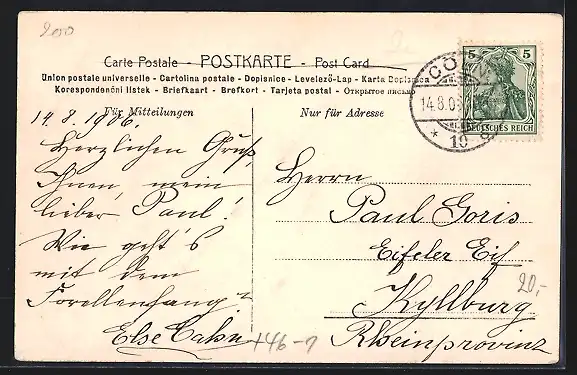 200
Carte Postale - POSTKARTE - Post Card
Union postale universelle - Cartolina postale - Dopisnice - Levelező-Lap - Karta
Korespondenční listek - Briefkaart - Brefkort - Tarjeta postal - Открытое письмо
Für Mitteilungen
14.8.1906.
Herzlichen Gruß
Ihnen, mein
lieber Paul!
Wie geht's
mit dem
Forellenfang?
Else Cahn
+46-9
Nur für Adresse
5 5
DEUTSCHES REICH
CÖLN
14.8.06
* 10
Herrn
Paul Goris
Eifeler
Kyllburg
Rheinprovinz
20,-